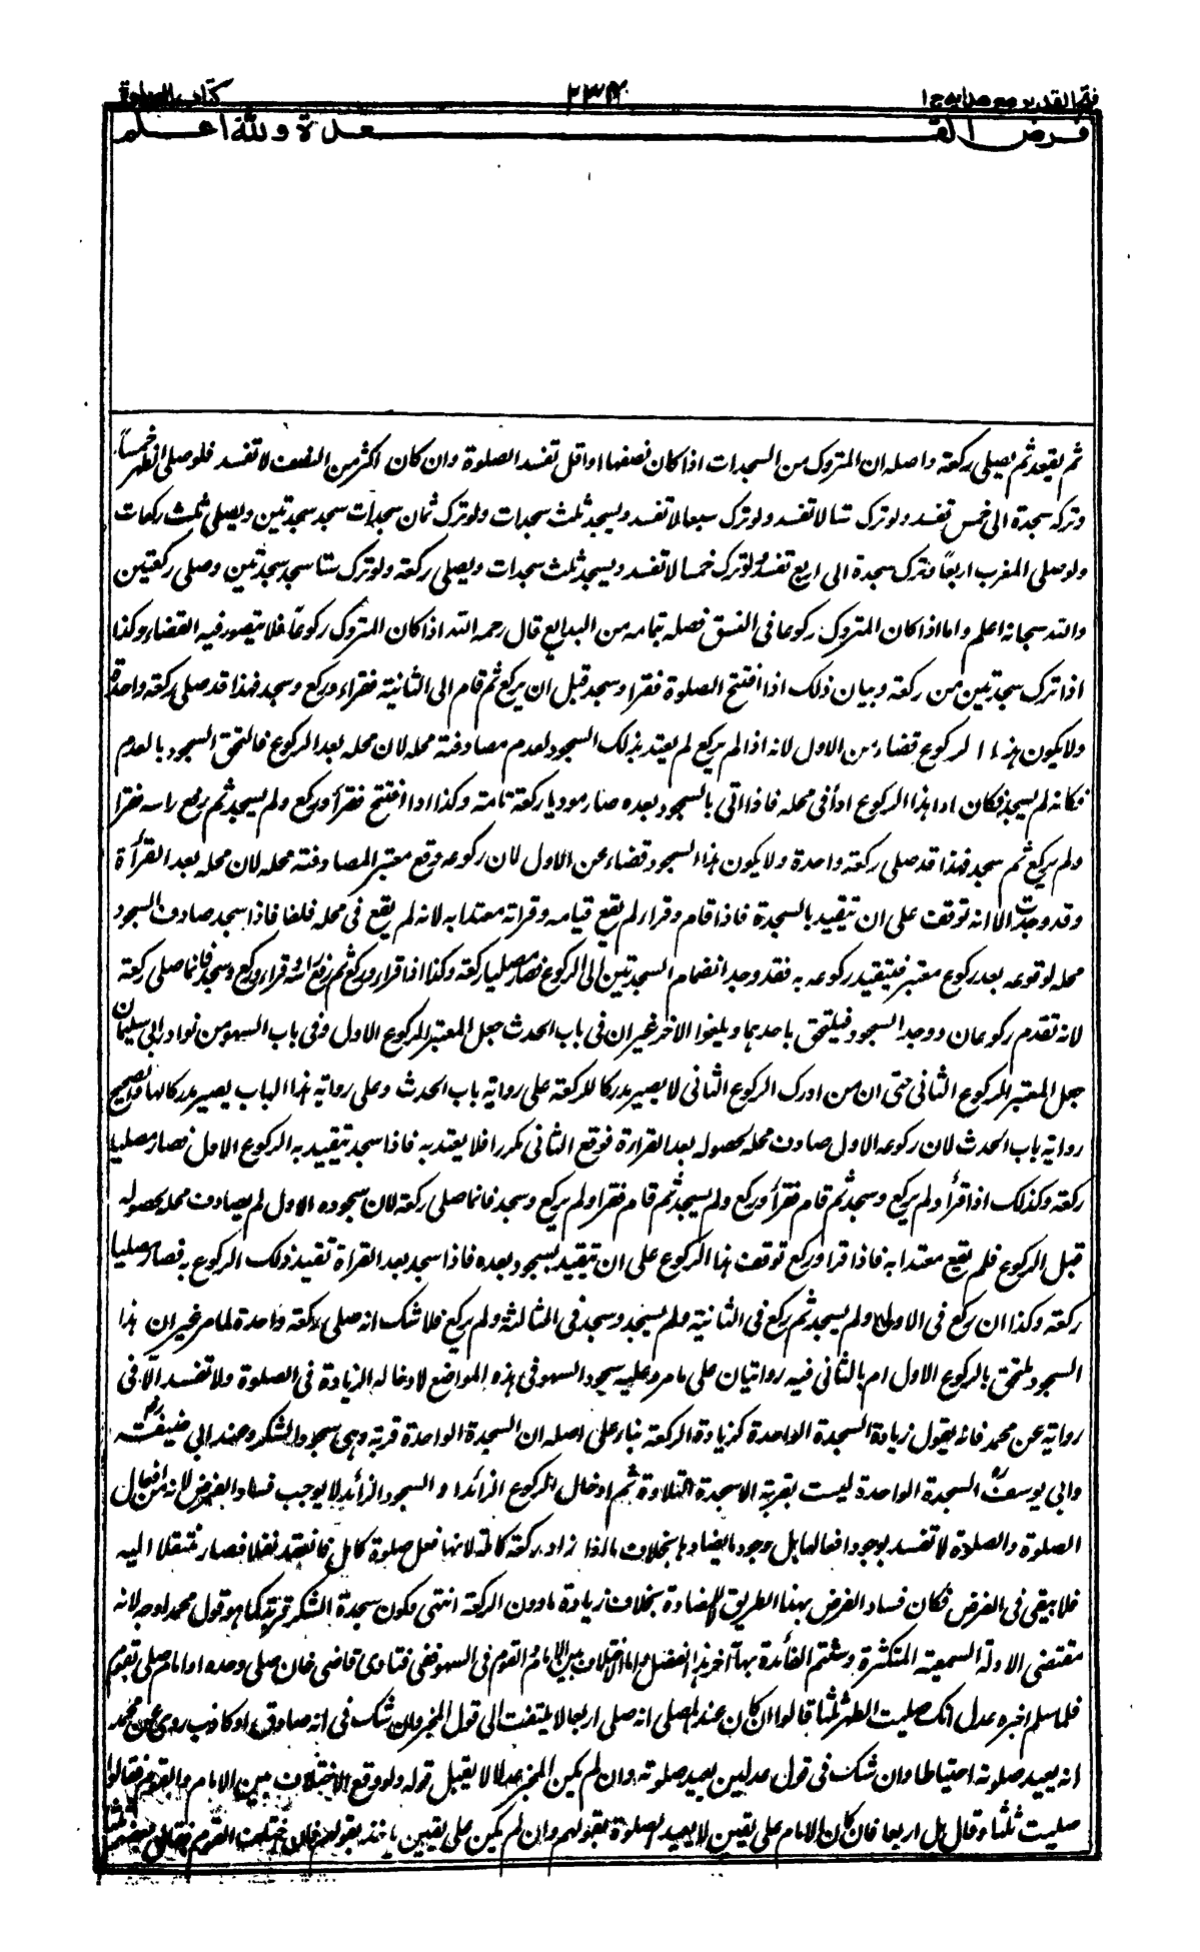 فتح القدير مع هدايه ج ١ ٢٣٢ كتاب الصلوة
فرض القعدة والله اعلم
ثم يقعد ثم يصلى ركعة واصله ان المتروك من السجدات اذا كان نصفها او اقل تفسد الصلوة وان كان اكثر من النصف لا تفسد فلو صلى الظهر خمساً
وترك سجدة الى خمس تفسد ولو ترك ستا لا تفسد ولو ترك سبعا لا تفسد ويسجد ثلث سجدات ولو ترك ثمان سجدات سجد سجدتين ويصلى ثلث ركعات
ولو صلى المغرب اربعاً وترك سجدة الى اربع تفسد ولو ترك خمسا لا تفسد ويسجد ثلث سجدات ويصلى ركعة ولو ترك ستا سجد سجدتين وصلى ركعتين
والله سبحانه اعلم واما اذا كان المتروك ركوعا فى النسق فصله بتمامه من البدايع قال رحمه الله اذا كان المتروك ركوعا فلا يتصور فيه القضاء وكذا
اذا ترك سجدتين من ركعة وبيان ذلك اذا افتتح الصلوة فقرا وسجد قبل ان يركع ثم قام الى الثانية فقراء وركع وسجد فهذا قد صلى ركعة واحدة
ولا يكون هذا الركوع قضاء من الاول لانه اذا لم يركع لم يعتد بذلك السجود لعدم مصادفته محله لان محله بعد الركوع فالتحق السجود بالعدم
فكانه لم يسجد فكان اداء هذا الركوع اداء فى محله فاذا اتى بالسجود بعده صار موديا ركعة تامة وكذا اذا افتتح فقرأ وركع ولم يسجد ثم رفع راسه فقرا
ولم يركع ثم سجد فهذا قد صلى ركعة واحدة ولا يكون هذا السجود قضاء عن الاول لان ركوعه وقع معتبر المصادفته محله لان محله بعد القرأة
وقد وجدت الا انه توقف على ان تتقيد بالسجدة فاذا قام وقرا لم يقع قيامه وقراته معتدا به لانه لم يقع فى محله فلغا فاذا سجد صادف السجود
محله لوقوعه بعد ركوع معتبر فيتقيد ركوعه به فقد وجد انضمام السجدتين الى الركوع فصار مصليا ركعة وكذا اذا قرا وركع ثم رفع راسه وقرا وركع وسجد فانما صلى ركعة
لانه تقدم ركوعان ووجد السجود فيلتحق باحدهما ويلغوا الاخر غير ان فى باب الحدث جعل المعتبر الركوع الاول وفى باب السهو من نوادر ابى سليمان
جعل المعتبر الركوع الثانى حتى ان من ادرك الركوع الثانى لا يصير مدركا للركعة على رواية باب الحدث وعلى رواية هذا الباب يصير مدركا لها والصحيح
رواية باب الحدث لان ركوعه الاول صادف محله لحصوله بعد القراءة فوقع الثانى مكررا فلا يعتد به فاذا سجد يتقيد به الركوع الاول فصار مصليا
ركعة وكذلك اذا قرأ ولم يركع وسجد ثم قام فقرأ وركع ولم يسجد ثم قام فقرا ولم يركع وسجد فانما صلى ركعة لان سجوده الاول لم يصادف محله لحصوله
قبل الركوع فلم يقع معتدا به فاذا قرا وركع توقف هذا الركوع على ان تتقيد بسجود بعده فاذا سجد بعد القرأة تقيد ذلك الركوع به فصار مصليا
ركعة وكذا ان ركع فى الاولى ولم يسجد ثم ركع فى الثانية ولم يسجد وسجد فى الثالثة ولم يركع فلا شك انه صلى ركعة واحدة لما مر غير ان هذا
السجود يلتحق بالركوع الاول ام بالثانى فيه روايتان على ما مر وعليه سجود السهو فى هذه المواضع لادخاله الزيادة فى الصلوة ولا تفسد الا فى
رواية عن محمد فانه يقول زيادة السجدة الواحدة كزيادة الركعة بناء على اصله ان السجدة الواحدة قربة وهى سجود الشكر وعند ابى حنيفة رح
وابى يوسف رح السجدة الواحدة ليست بقربة الا سجدة التلاوة ثم ادخال الركوع الزائد او السجود الزائد لا يوجب فساد الفرض لانه من افعال
الصلوة والصلوة لا تفسد بوجود افعالها بل وجود ما يضادها بخلاف ما اذا زاد ركعة كاملة لانها فعل صلوة كامل فانعقد نفلا فصار منتقلا اليه
فلا يبقى فى الفرض فكان فساد الفرض بهذا الطريق للمضادة بخلاف زيادة ما دون الركعة انتهى وكون سجدة الشكر قربة كما هو قول محمد اوجه لانه
مقتضى الادلة السمعية المتكثرة وستتم الفائدة بها آخر هذا الفصل واما الاختلاف بين الامام والقوم فى السهو ففى فتاوى قاضى خان صلى وحده او امام صلى بقوم
فلما سلم اخبره عدل انك صليت الظهر ثلثا قالوا ان كان عند المصلى انه صلى اربعا لا يلتفت الى قول المخبر وان شك فى انه صادق او كاذب روى عن محمد
انه يعيد صلوته احتياطا وان شك فى قول عدلين يعيد صلوته وان لم يكن المخبر عدلا لا يقبل قوله ولو وقع الاختلاف بين الامام والقوم فقالوا
صليت ثلثا وقال بل اربعا فان كان الامام على يقين لا يعيد الصلوة بقولهم وان لم يكن على يقين ياخذ بقولهم فان اختلف القوم فقال بعضهم ثلثا